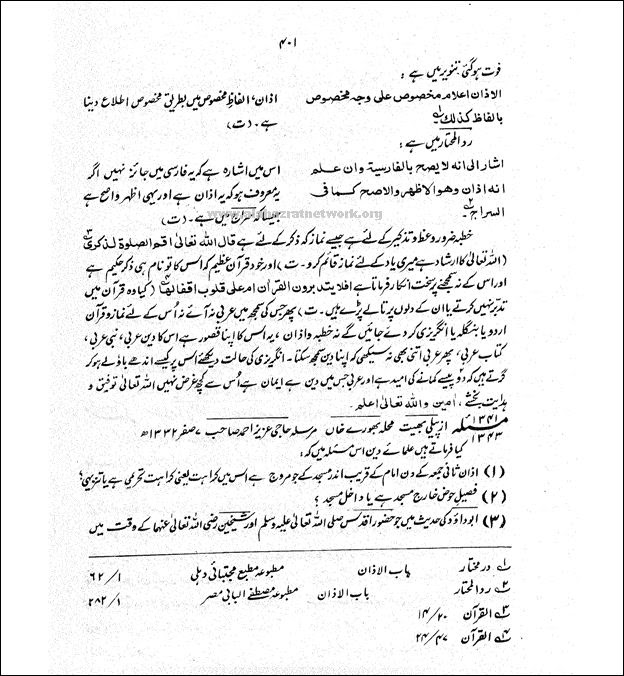 ۴۰۱
فوت ہوگئی تنویر میں ہے :
الاذان اعلام مخصوص علی وجہ مخصوص
بالفاظ کذلک۱
اذان، الفاظِ مخصوص میں بطریقِ مخصوص اطلاع دینا
ہے۔ (ت)
ردالمحتار میں ہے :
اشار الی انہ لا یصح بالفارسیۃ وان علم
انہ اذان وھو الاظھر والاصح کما فی
السراج۲۔
اس میں اشارہ ہے کہ یہ فارسی میں جائز نہیں اگر
یہ معروف ہو کہ یہ اذان ہے اور یہی اظہر واضح ہے
جیسا کہ سراج میں ہے۔ (ت)
www.alahazratnetwork.org
خطبہ ضرور وعظ و تذکیر کے لئے ہے جیسے نماز کہ ذکر کے لئے ہے قال اللہ تعالیٰ اقم الصلوۃ لذکری۳
(اللہ تعالیٰ کا ارشاد ہے میری یاد کے لئے نماز قائم کرو۔ت) اور خود قرآن عظیم کہ اس کا تو نام ہی ذکر حکیم ہے
اور اس کے نہ سمجھنے پر سخت انکار فرماتا ہے افلا یتدبرون القرآن ام علی قلوب اقفالھا۴ (کیا وہ قرآن میں
تدبّر نہیں کرتے یا ان کے دلوں پر تالے پڑے ہیں۔ ت) پھر جس کی سمجھ میں عربی نہ آئے نہ اُس کے لئے نماز و قرآن
اردو یا بنگلہ یا انگریزی کر دئے جائیں گے نہ خطبہ و اذان، یہ اس کا اپنا قصور ہے اس کا دین عربی، نبی عربی،
کتاب عربی، پھر عربی اتنی بھی نہ سیکھی کہ اپنا دین سمجھ سکتا۔ انگریزی کی حالت دیکھئے اس پر کیسے اندھے باؤلے ہو کر
گرتے ہیں کہ دو پیسے کمانے کی امید ہے اور عربی جس میں دین ہے ایمان ہے اُس سے کچھ غرض نہیں اللہ تعالیٰ توفیق و
ہدایت بخشے، اٰمین واللہ تعالیٰ اعلم۔
مسئلہ ۱۳۴۱ ۱۳۴۳ از پیلی بھیت محلہ بھورے خاں مرسلہ حاجی عزیز احمد صاحب ۷ صفر ۱۳۳۲ھ
کیا فرماتے ہیں علمائے دین اس مسئلہ میں کہ :
(۱) اذان ثانی جمعہ کے دن امام کے قریب اندر مسجد کے جو مروج ہے اس میں کراہت یعنی کراہت تحریمی ہے یا تنزیہی؟
(۲) فصیل حوض خارج مسجد ہے یا داخل مسجد ؟
(۳) ابوداؤد کی حدیث میں جو حضور اقدس صلی اللہ تعالیٰ علیہ وسلم اور شیخین رضی اللہ تعالیٰ عنہما کے وقت میں
۱ درمختار باب الاذان مطبوعہ مطبع مجتبائی دہلی ۱/ ۶۲
۲ ردالمحتار باب الاذان مطبوعہ مصطفے البابی مصر ۱/ ۲۸۲
۳ القرآن ۲۰/ ۱۴
۴ القرآن ۴۷/ ۲۴